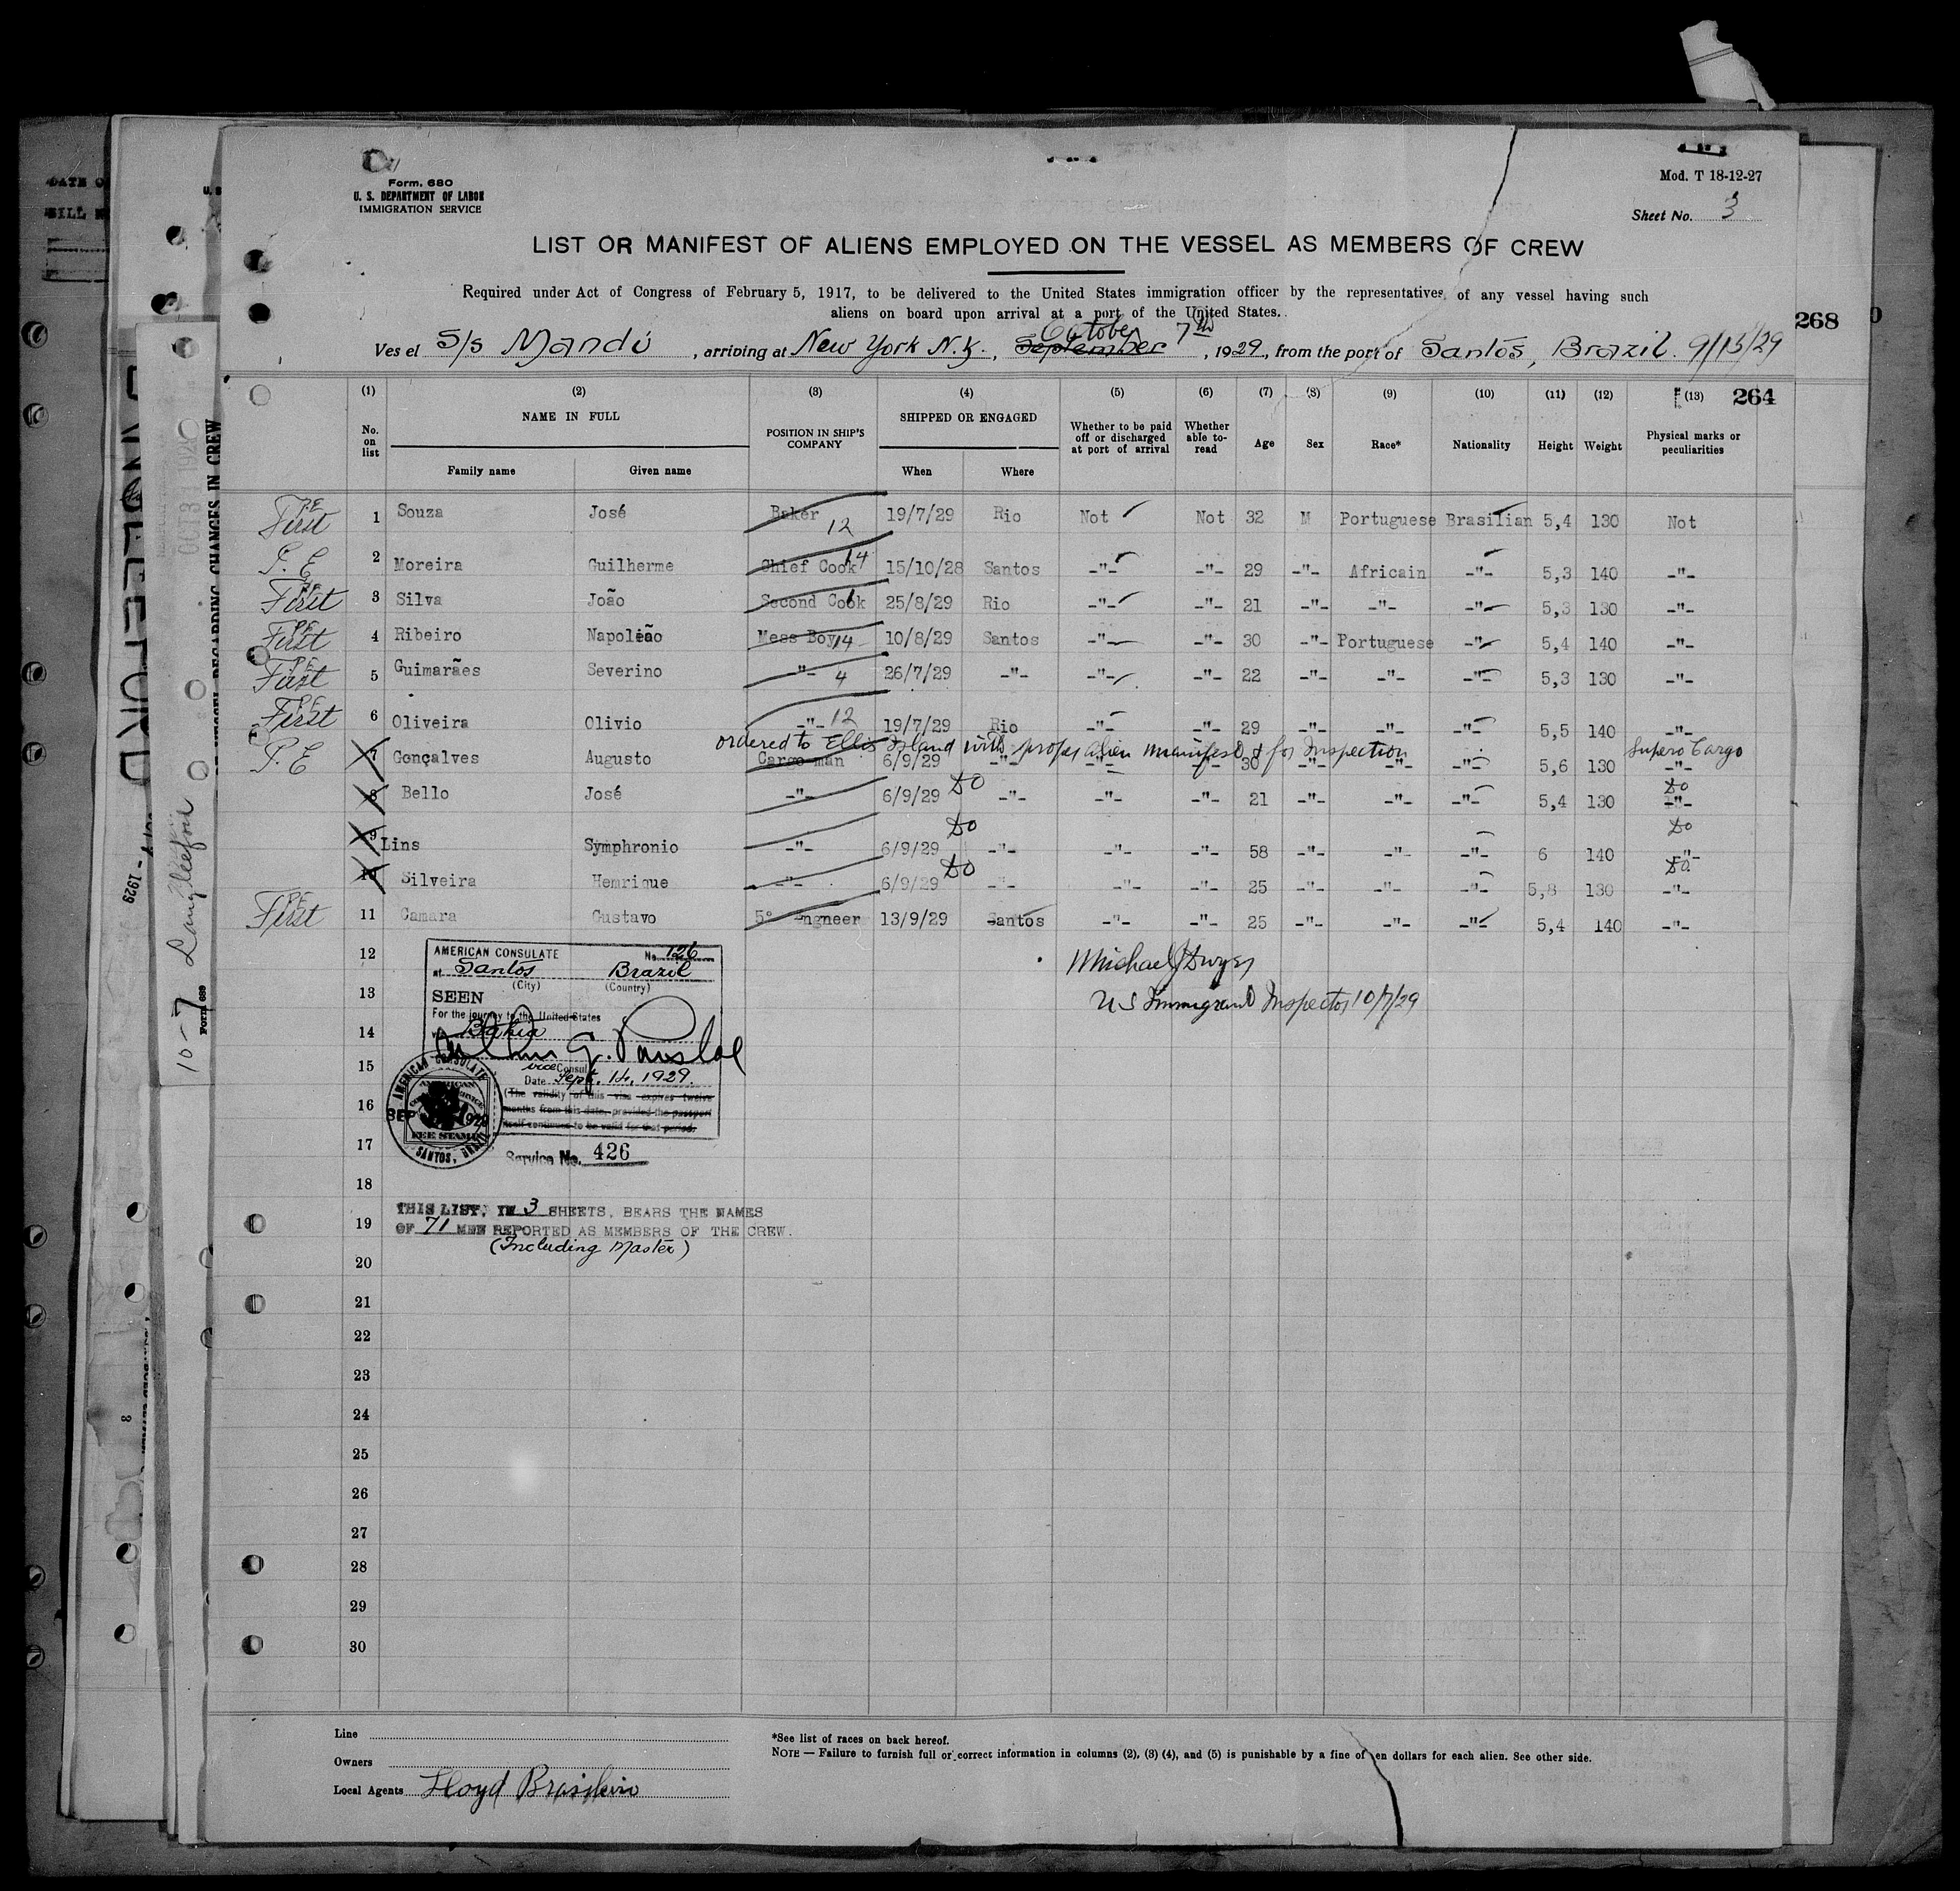 Form. 680
U. S. DEPARTMENT OF LABOR
IMMIGRATION SERVICE
Mod. T 18-12-27
Sheet No. 3
LIST OR MANIFEST OF ALIENS EMPLOYED ON THE VESSEL AS MEMBERS OF CREW
Required under Act of Congress of February 5, 1917, to be delivered to the United States immigration officer by the representatives of any vessel having such
aliens on board upon arrival at a port of the United States.
October 7th
Ves el S/s Mandú, arriving at New York N.Y., September, 1929, from the port of Santos, Brazil. 9/15/29
268
264
(1) (2) (3) (4) (5) (6) (7) (8) (9) (10) (11) (12) (13)
No. on list NAME IN FULL POSITION IN SHIP'S COMPANY SHIPPED OR ENGAGED Whether to be paid off or discharged at port of arrival Whether able to- read Age Sex Race* Nationality Height Weight Physical marks or peculiarities
Family name Given name When Where
First P.E 1 Souza José Baker 12 19/7/29 Rio Not Not 32 M Portuguese Brasilian 5,4 130 Not
P. E 2 Moreira Guilherme Chief Cook 14 15/10/28 Santos -"- -"- 29 -"- Africain -"- 5,3 140 -"-
First P.E 3 Silva João Second Cook 25/8/29 Rio -"- -"- 21 -"- -"- -"- 5,3 130 -"-
First P.E 4 Ribeiro Napoleão Mess Boy 14 10/8/29 Santos -"- -"- 30 -"- Portuguese -"- 5,4 140 -"-
First P.E 5 Guimarães Severino -"- 4 26/7/29 -"- -"- -"- 22 -"- -"- -"- 5,3 130 -"-
First P.E 6 Oliveira Olivio -"- 12 19/7/29 Rio -"- -"- 29 -"- -"- -"- 5,5 140 -"-
ordered to Ellis Island with proper alien manifest & for Inspection Supero Cargo
P. E 7 Gonçalves Augusto Cargo man 6/9/29 -"- -"- -"- 30 -"- -"- -"- 5,6 130 -"-
8 Bello José -"- 6/9/29 Do -"- -"- -"- 21 -"- -"- -"- 5,4 130 Do -"-
9 Lins Symphronio -"- 6/9/29 Do -"- -"- -"- 58 -"- -"- -"- 6 140 Do -"-
10 Silveira Henrique -"- 6/9/29 Do -"- -"- -"- 25 -"- -"- -"- 5,8 130 Do. -"-
First P.E 11 Camara Gustavo 5° ngneer 13/9/29 Santos -"- -"- 25 -"- -"- -"- 5,4 140 -"-
12
13
14
15
16
17
18
19
20
21
22
23
24
25
26
27
28
29
30
AMERICAN CONSULATE No. 126
at Santos Brazil
(City) (Country)
SEEN
For the journey to the United States
via Bahia
vice Consul
Date Sept. 14, 1929.
(The validity of this visa expires twelve
months from this date, provided the passport
itself continues to be valid for that period.
AMERICAN CONSULATE
SEP 1929
FEE STAMP
SANTOS, BRAZIL
Service No. 426
Michael J Dwyer
US Immigrant Inspector 10/7/29
THIS LIST, IN 3 SHEETS, BEARS THE NAMES
OF 71 MEN REPORTED AS MEMBERS OF THE CREW.
(Including Master)
Line
Owners
Local Agents Lloyd Brasileiro
*See list of races on back hereof.
NOTE — Failure to furnish full or correct information in columns (2), (3) (4), and (5) is punishable by a fine of en dollars for each alien. See other side.
OCT 3 1929
VESSEL REGARDING CHANGES IN CREW
Form 689
10-7
1929